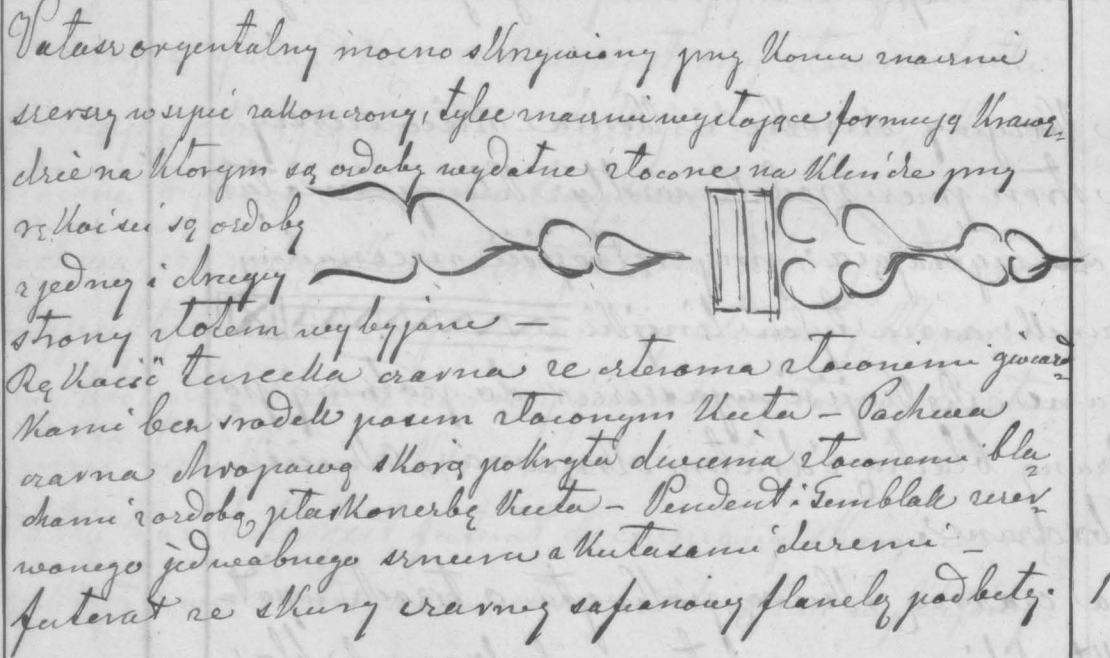 Pałasz oryentalny mocno skrzywiony przy Koncu znacznie
szerszy w szpic zakonczony, tylec znacznie wystające formują Krawę-
dzie na Ktorym są ozdoby wydatne złocone na Klińdze przy
rękoiści są ozdoby
z jedney i drugiey
strony złotem wybyjane –
Rękoiść turecka czarna ze czterema złoconemi gwiazd-
kami bez srodek pasem złoconym Kuta – Pochwa
czarna chropawą skorą pokryta dwiema złoconemi bla-
chami z ozdobą płaskorzeźbę Kuta – Pendent i Temblak czer-
wonego jedwabnego sznura z Kutasami dwiemi –
futerał ze skury czarney safianowey flanelą podbety.